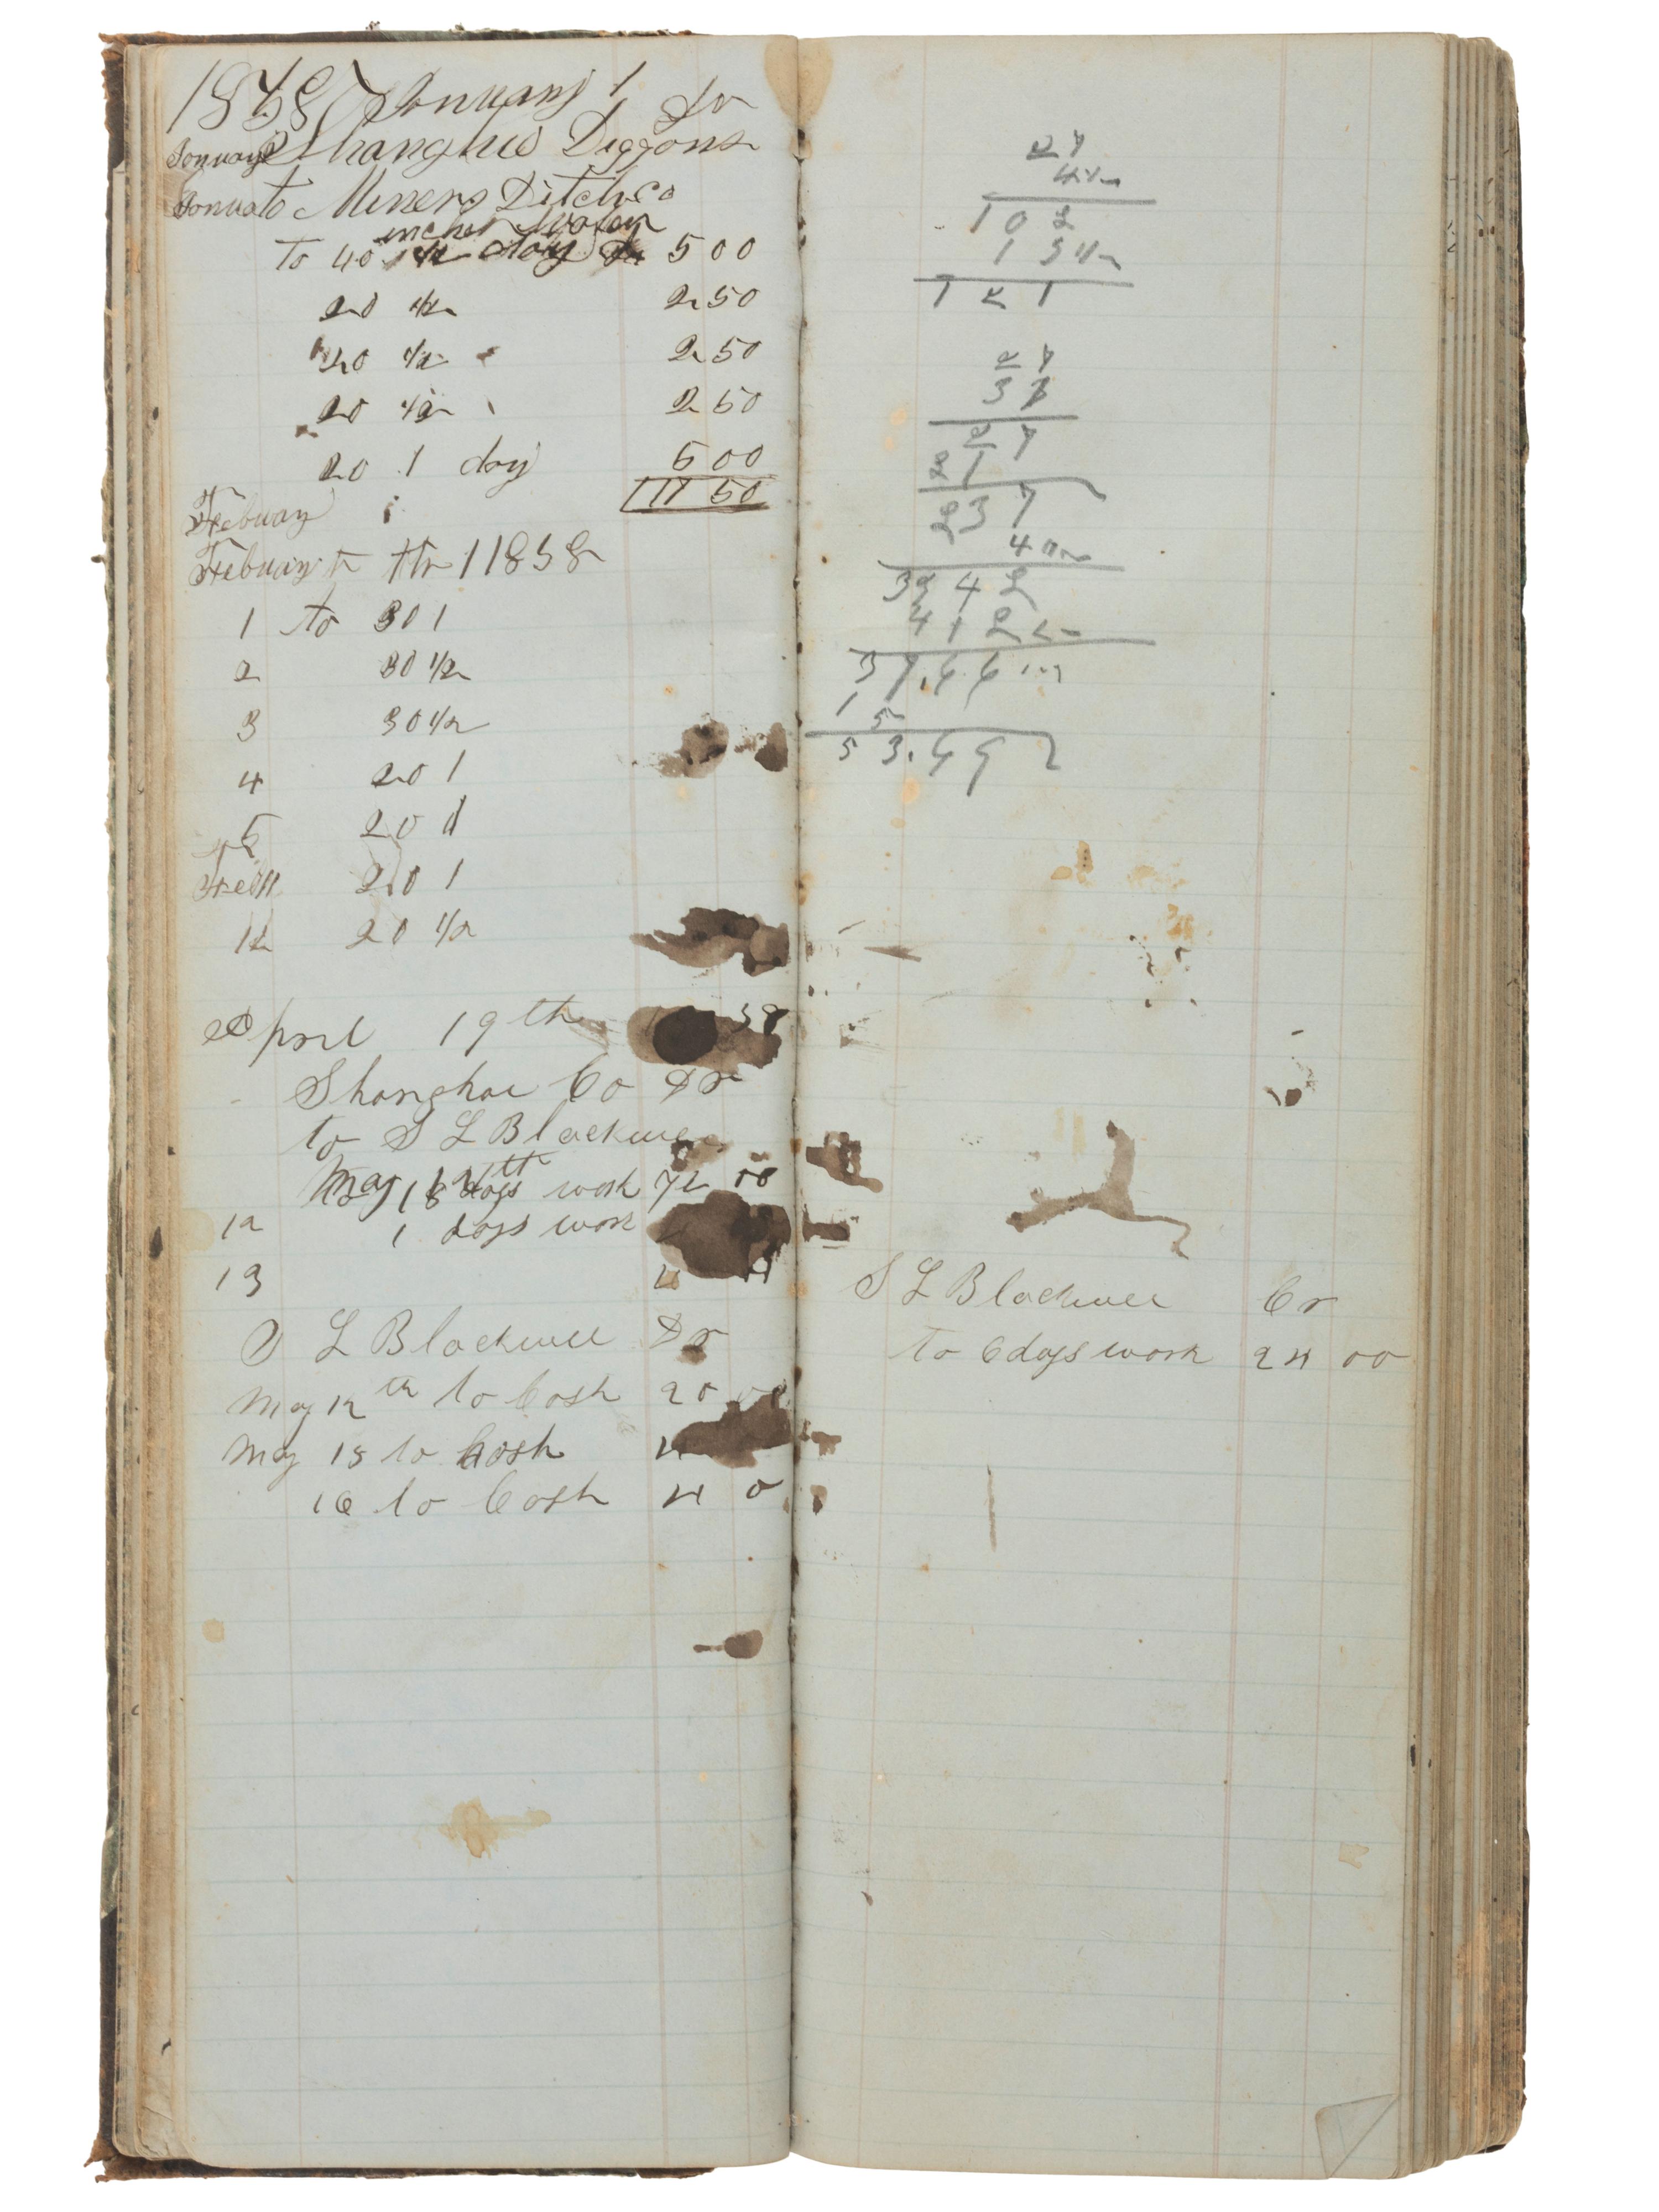 1858 January 1
Dr
January Shanghie Diggons
to Miners Ditch Co
inches Water
To 40 1/2 day 5 00
20 1/2 2 50
20 1/2 2 50
20 1/2 2 50
20 1 day 5 00
17 50
Febuary
Febuary th 1 1858
1 to 30 1
2 30 1/2
3 30 1/2
4 20 1
5 20 1
Feb 11 20 1
12 20 1/2
April 19th 58
Shanghae Co Dr
to S L Blackwell
May 11th
18 days work 72 00
12 1 days work
13 4
S L Blackwell Dr
May 12th to Cash 20 00
May 15 to Cash 4
16 to Cash 4 0
27
4
1 0 2
1 9
1 2 1
2 7
3 1
2 7
8 1
2 3 7
4
4 1 2
3 7.6 6
1 5
5 3.6 9
S L Blackwell Cr
to 6 days work 24 00